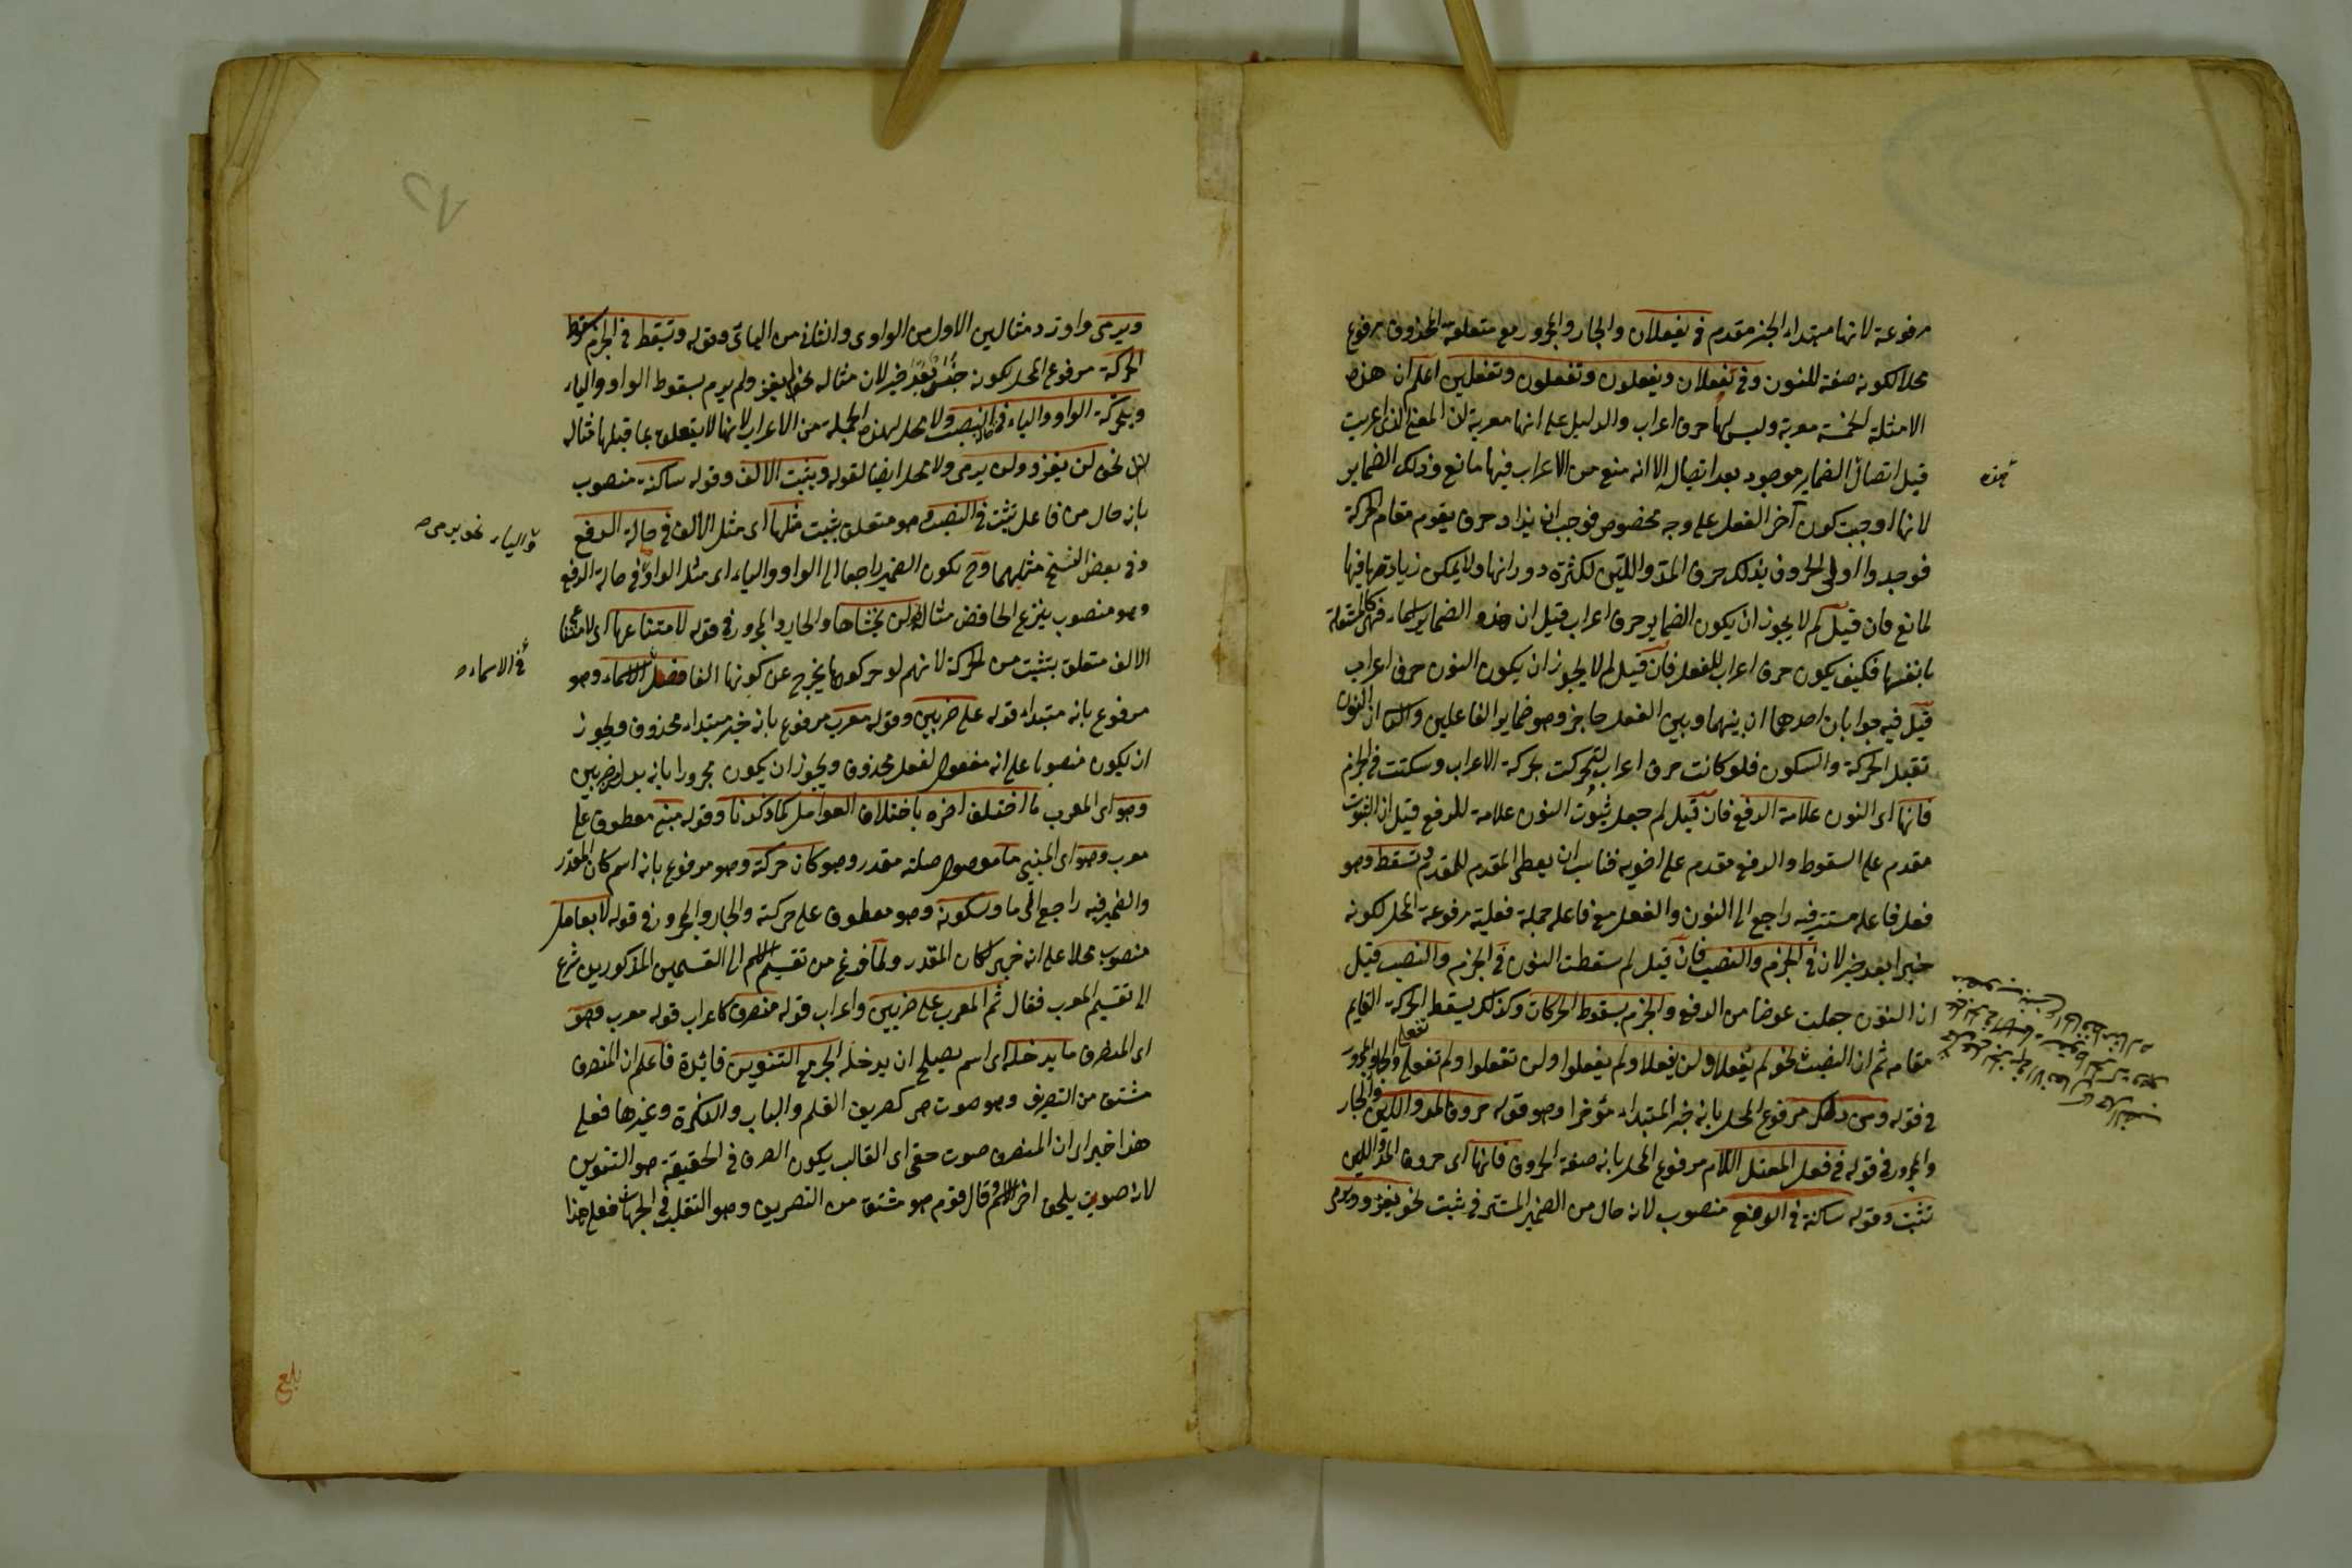 مرفوعة لانها مبتداء الخبر مقدم في يفعلان والجار والمجرور مع متعلقه المحذوف مرفوع
محلا لكونه صفة للنون وفي تفعلان ويفعلون وتفعلون وتفعلين اعلم ان هذه
الامثلة الخمسة معربة وليس لها حرف اعراب والدليل على انها معربة لان المعنى الذى اعربت
قبل اتصال الضماير موجود بعد اتصال الا انه منع من الاعراب فيها مانع وذلك الضماير
لانها اوجبت كون آخر الفعل على وجه مخصوص فوجب ان يزاد حرف يقوم مقام الحركة
فوجدوا اولى الحروف بذلك حرف المد واللين لكثرة دورانها ولا يمكن زيادتها فيها
لمانع فان قيل لم لا يجوز ان يكون الضماير حرف اعراب قيل ان هذه الضماير اسماء فهى كالمستقلة
بانفسها فكيف يكون حرف اعراب للفعل فان قيل لم لا يجوز ان يكون النون حرف اعراب
قيل فيه جوابان احدهما ان بينهما وبين الفعل حاجز وهو ضماير الفاعلين والثانى ان النون
تقبل الحركة والسكون فلو كانت حرف اعراب لتحركت بحركة الاعراب وسكنت في الجزم
فانها اى النون علامة الرفع فان قيل لم جعل ثبوت النون علامة للرفع قيل ان الثبوت
مقدم على السقوط والرفع مقدم على اخويه فناسب ان يعطى المقدم للمقدم وتسقط وهو
فعل فاعله مستتر فيه راجع الى النون والفعل مع فاعله جملة فعلية مرفوعة المحل لكونه
خبرا بعد خبر لان في الجزم والنصب فان قيل لم سقطت النون في الجزم والنصب قيل
ان النون جعلت عوضا من الرفع والجزم بسقوط الحركات وكذلك يسقط الحركة القايم
مقامه ثم ان النصب نحو لم يفعلا ولن يفعلا ولم يفعلوا ولن تفعلوا ولم تفعلى والجار والمجرور
في قوله ومن ذلك مرفوع المحل بانه خبر المبتداء مؤخرا وهو قوله حروف المد واللين والجار
والمجرور في قوله في فعل المعتل اللام مرفوع المحل بانه صفة الحروف فانها اى حروف المد واللين
تثبت وقوله ساكنة في الرفع منصوب لانه حال من الضمير المستتر في تثبت نحو يغزو ويرمى
هذه
ويرمى واورد مثالين الاول من الواوى والثانى من اليائى وقوله وتسقط في الجزم سقوط
الحركة مرفوع المحل لكونه خبرا بعد خبر لان مثاله نحو لم يغز ولم يرم بسقوط الواو والياء
ويحركة الواو والياء في النصب ولا محل لهذه الجملة من الاعراب لانها لا يتعلق بما قبلها مثاله
نحو لن يغزو ولن يرمى ولا محل ايضا لقوله ويثبت الالف وقوله ساكنة منصوب
بانه حال من فاعل تثبت في النصب وهو متعلق بتثبت مثلها اى مثل الالف في حالة الرفع
وفي بعض النسخ مثلهما وح يكون الضمير راجعا الى الواو والياء اى مثل الواو في حالة الرفع
وهو منصوب بنزع الخافض مثاله لن يخشاها والجار والمجرور في قوله لامتناعها اى لامتناع
الالف متعلق بتثبت من الحركة لانهم لو حركوها يخرج عن كونها الفا فصل الاسماء وهو
مرفوع بانه مبتداء قوله على ضربين وقوله معرب مرفوع بانه خبر مبتداء محذوف ويجوز
ان يكون منصوبا على انه مفعول لفعل محذوف ويجوز ان يكون مجرورا بانه بدل ضربين
وهو اى المعرب ما اختلف اخره باختلاف العوامل كما ذكرنا وقوله مبنى معطوف على
معرب وهو اى المبنى ما موصول صلته مقدر وهو كان حركة وهو مرفوع بانه اسم كان المقدر
والضمير فيه راجع الى ما وسكونه وهو معطوف على حركته والجار والمجرور في قوله لا بعامل
منصوب محلا على انه خبر لكان المقدر ولما فرغ من تقسيم الاسم الى القسمين المذكورين شرع
الى تقسيم المعرب فقال ثم المعرب على ضربين واعراب قوله منصرف كاعراب قوله معرب وهو
اى المنصرف ما يدخله اى اسم يصلح ان يدخله الجر مع التنوين فائدة فاعلم ان المنصرف
مشتق من التصريف وهو صوت كصريف القلم والباب والبكرة وغيرها فعلى
هذا خبر اى ان المنصرف صوت حقى اى القالب يكون الصرف في الحقيقة هو التنوين
لانه صوت يلحق اخر الاسم وقال قوم هو مشتق من التصريف وهو التقليب في الجهات فعلى هذا
والياء نحو يرمى صح
في الاسماء
بلغ